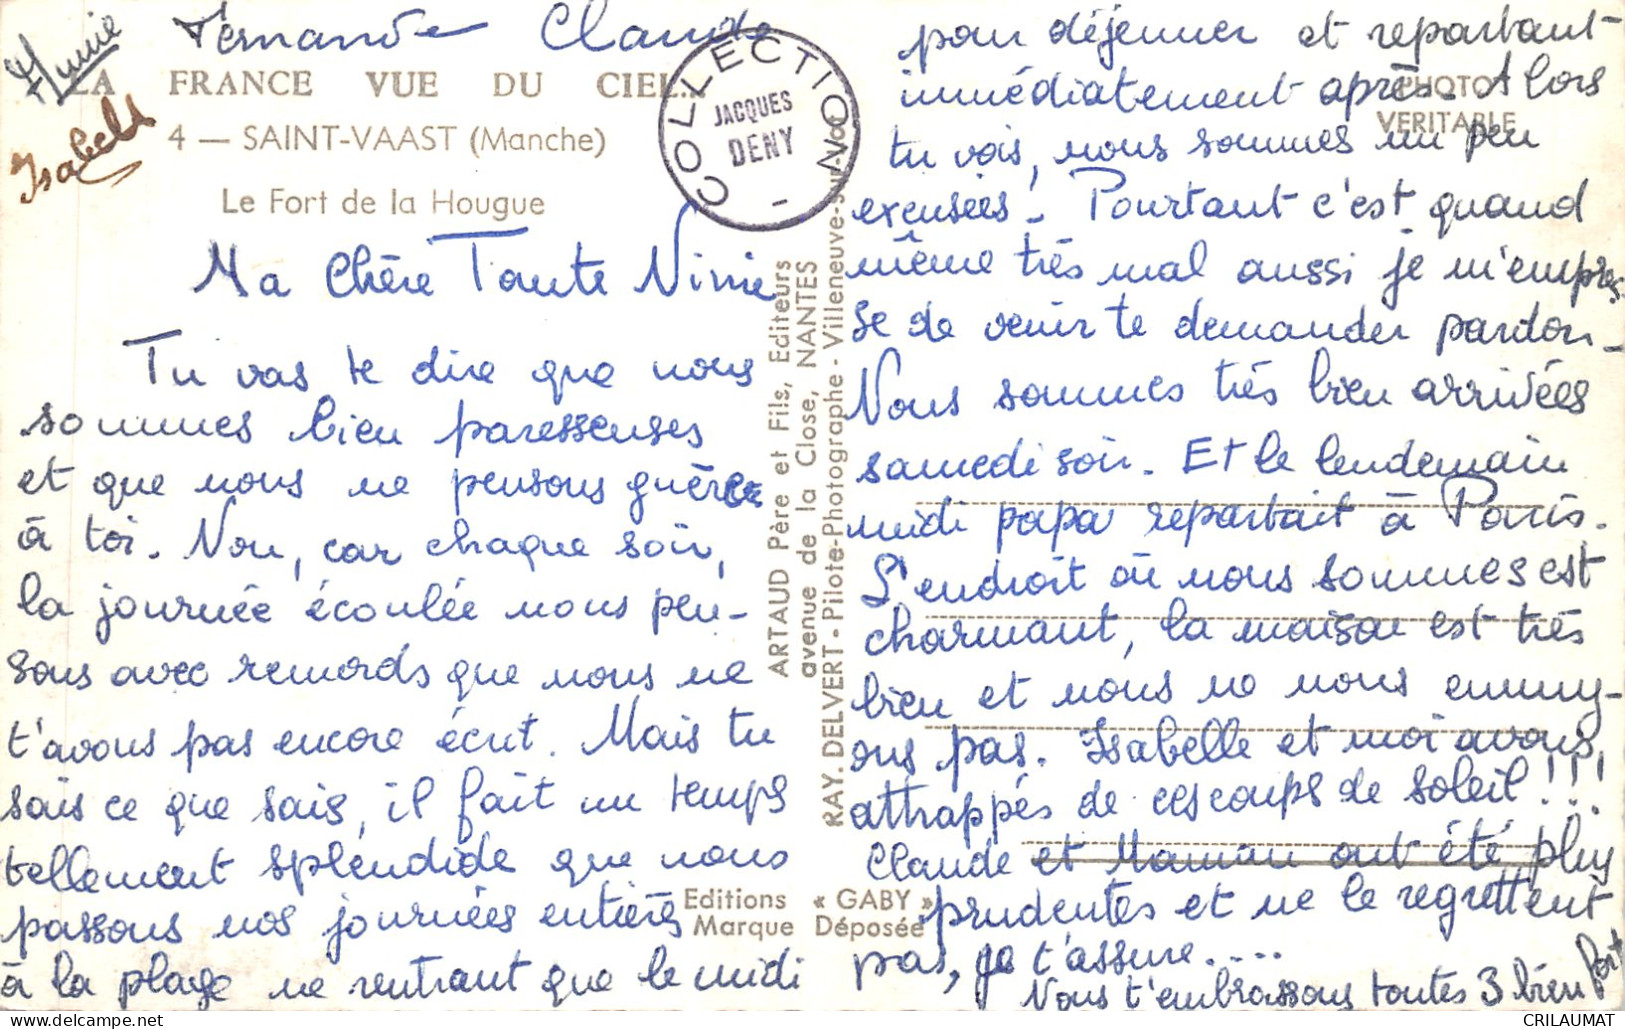 Fernande Claude
Annie
Isabelle
LA FRANCE VUE DU CIEL...
4 — SAINT-VAAST (Manche)
Le Fort de la Hougue
COLLECTION
JACQUES
DENY
PHOTO
VERITABLE
Ma Chère Tante Ninie
Tu vas te dire que nous
sommes bien paresseuses
et que nous ne pensons guère
à toi. Non, car chaque soir,
la journée écoulée nous pen-
sons avec remords que nous ne
t'avons pas encore écrit. Mais tu
sais ce que sais, il fait un temps
tellement splendide que nous
passons nos journées entières
à la plage ne rentrant que le midi
ARTAUD Père et Fils, Editeurs
avenue de la Close, NANTES
RAY. DELVERT - Pilote-Photographe - Villeneuve-sur-Lot
Editions « GABY »
Marque Déposée
pour déjeuner et repartant
immédiatement après. Alors
tu vois, nous sommes un peu
excusées. Pourtant c'est quand
même très mal aussi je m'empres-
se de venir te demander pardon.
Nous sommes très bien arrivées
samedi soir. Et le lendemain
midi papa repartait à Paris.
L'endroit où nous sommes est
charmant, la maison est très
bien et nous ne nous ennuy-
ons pas. Isabelle et moi avons
attrappés de ces coups de soleil!!!
Claude et Maman ont été plus
prudentes et ne le regrettent
pas, je t'assure....
Nous t'embrassons toutes 3 bien fort
CRILAUMAT